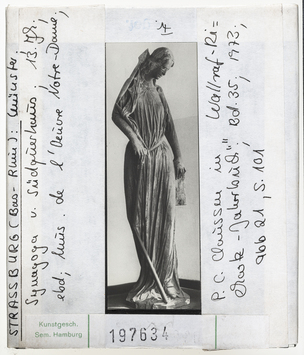 STRASSBURG (Bas-Rhin): Münster;
Synagoga v. Südquerhaus, 13. Jh;
ebd; Mus. de l'Oeuvre Notre-Dame;
P. C. Claussen in Wallraf-Ri=
chartz-Jahrbuch" Bd. 35, 1973,
Abb 21, S. 101
Kunstgesch.
Sem. Hamburg
197634